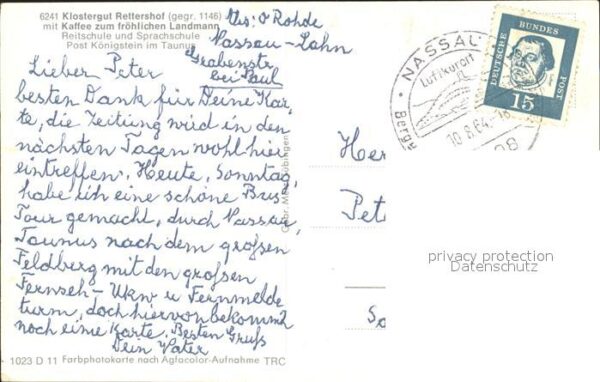 6241 Klostergut Rettershof (gegr. 1146)
mit Kaffee zum fröhlichen Landmann
Reitschule und Sprachschule
Post Königstein im Taunus
Abs: O Rohde
Nassau-Lahn
Grabenstr
bei Paul
Lieber Peter
besten Dank für Deine Kar-
te, die Zeitung wird in den
nächsten Tagen wohl hier
eintreffen. Heute, Sonntag,
habe ich eine schöne Bus
Tour gemacht, durch Nassau,
Taunus nach dem großen
Feldberg mit den großen
Fernseh- Ukw u Fernmelde
turm, doch hiervon bekommst
noch eine Karte. Besten Gruß
Dein Vater
1023 D 11 Farbphotokarte nach Agfacolor-Aufnahme TRC
Gebr. Metz Tübingen
NASSAU
Luftkurort
10.8.64.-18
DEUTSCHE BUNDESPOST
15
Her
Pet
So
privacy protection
Datenschutz